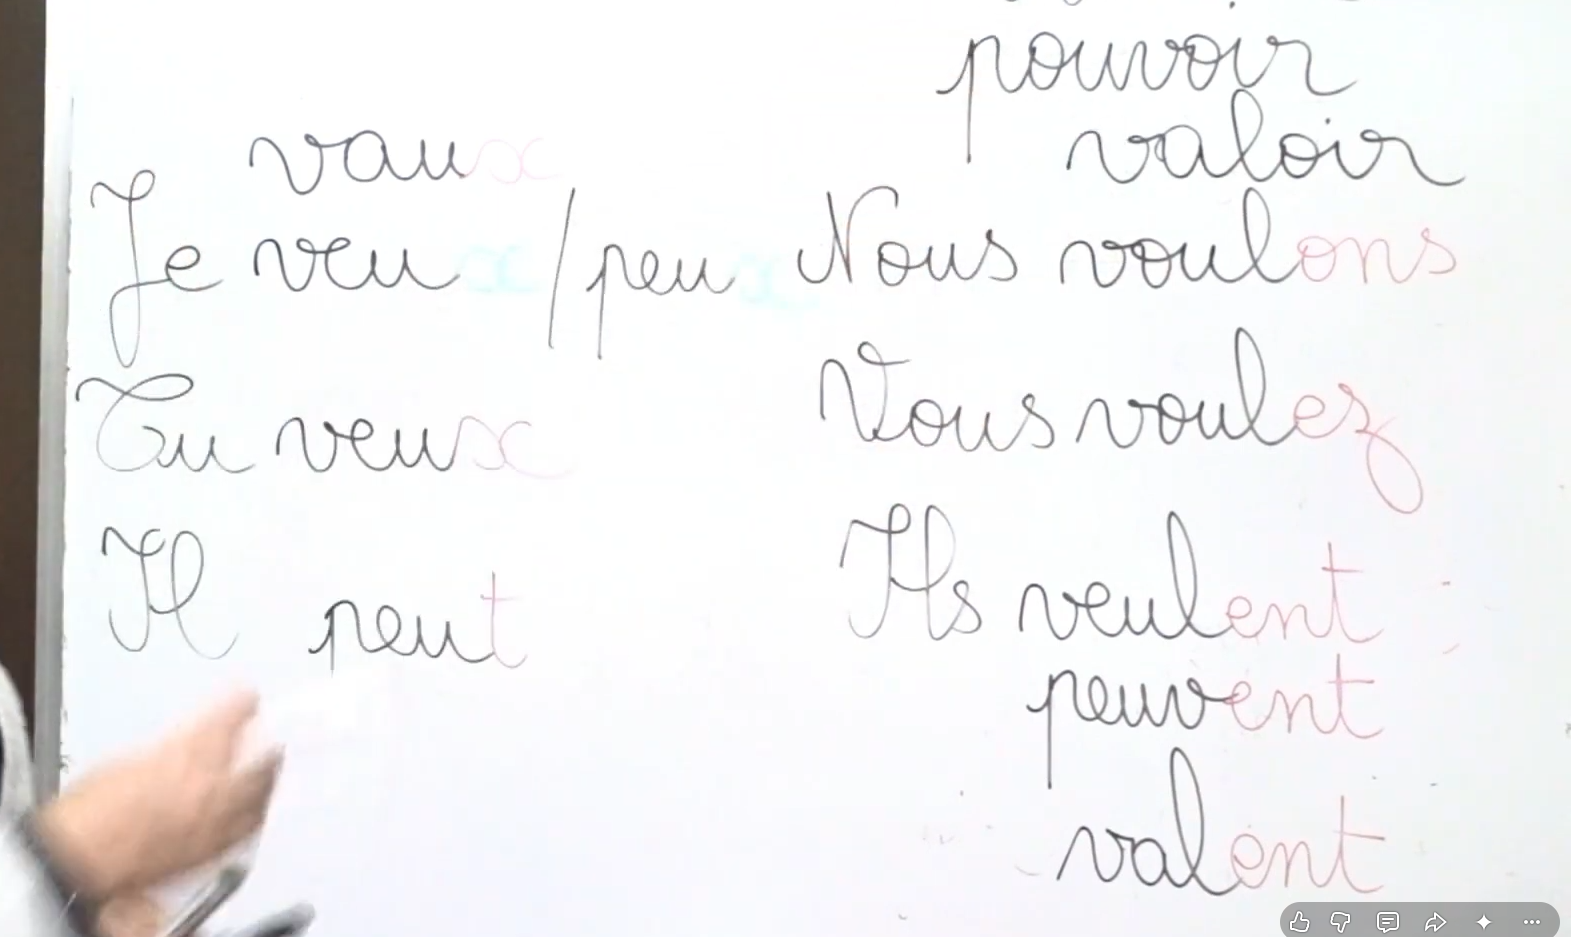 pouvoir
valoir
vaux
Je veux / peux
Tu veux
Il peut
Nous voulons
Vous voulez
Ils veulent
peuvent
valent